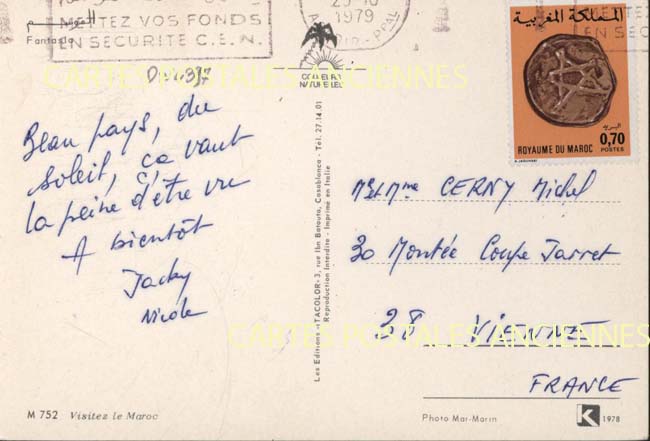 METTEZ VOS FONDS
EN SECURITE C.E.N.
Fantasia
1979
COULEURS
NATURELLES
CARTES POSTALES ANCIENNES
المملكة المغربية
0,70
POSTES
ROYAUME DU MAROC
Beau pays, du
soleil, ça vaut
la peine d'être vu
A bientôt
Jacky
Nicole
Les Editions «ITACOLOR» 3, rue Ibn Batouta, Casablanca - Tél. 27.14.01
Reproduction Interdite - Imprimé en Italie
Mr et Mme CERNY Michel
30 Montée Coupe Jarret
28 VIENNE
FRANCE
CARTES POSTALES ANCIENNES
M 752 Visitez le Maroc
Photo Mar-Marin
K 1978